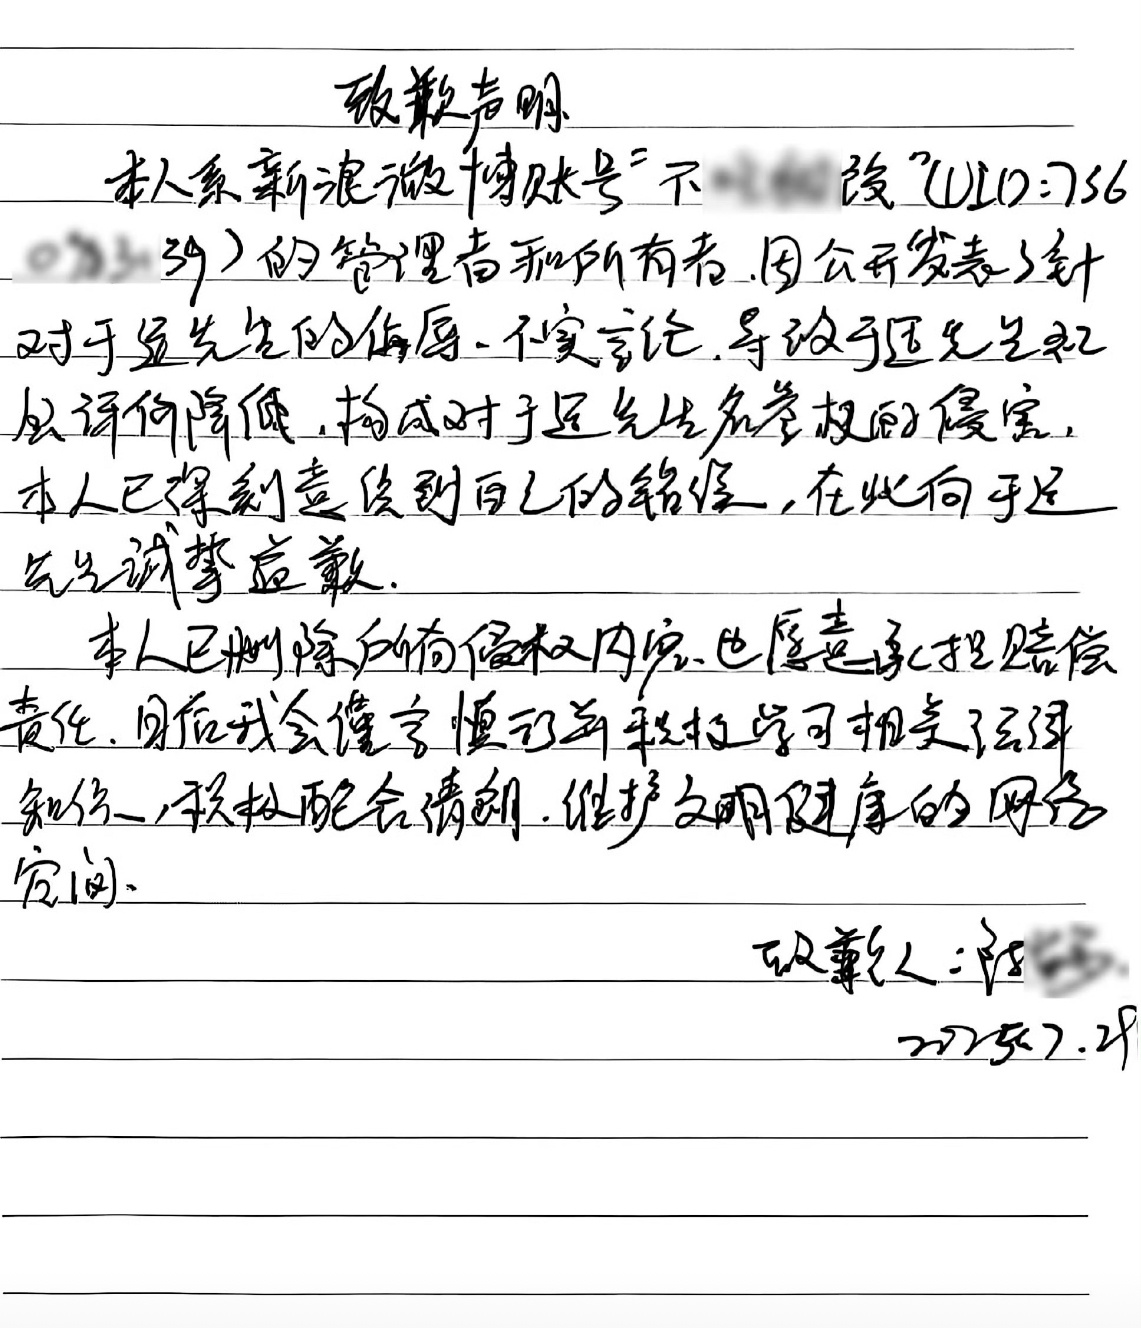 致歉声明
本人系新浪微博账号"不 改"(UID:756
39)的管理者和所有者,因公开发表了针
对于适先生的侮辱、不实言论,导致于适先生社
会评价降低,构成对于适先生名誉权的侵害,
本人已深刻意识到自己的错误,在此向于适
先生诚挚道歉.
本人已删除所有侵权内容,也愿意承担赔偿
责任.日后我会谨言慎行并积极学习相关法律
知识,积极配合清朗.维护文明健康的网络
空间.
致歉人:陈
2025.7.29